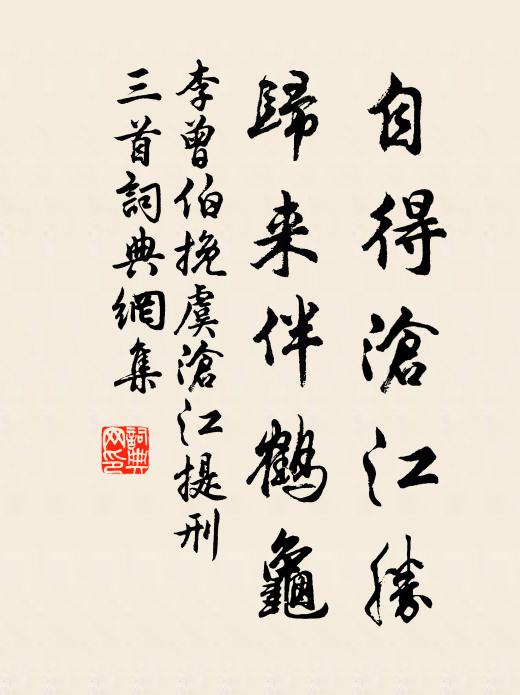 自得滄江勝
歸来伴鶴龜
李曾伯挽虞滄江提刑
三首詞典網集
詞典网印